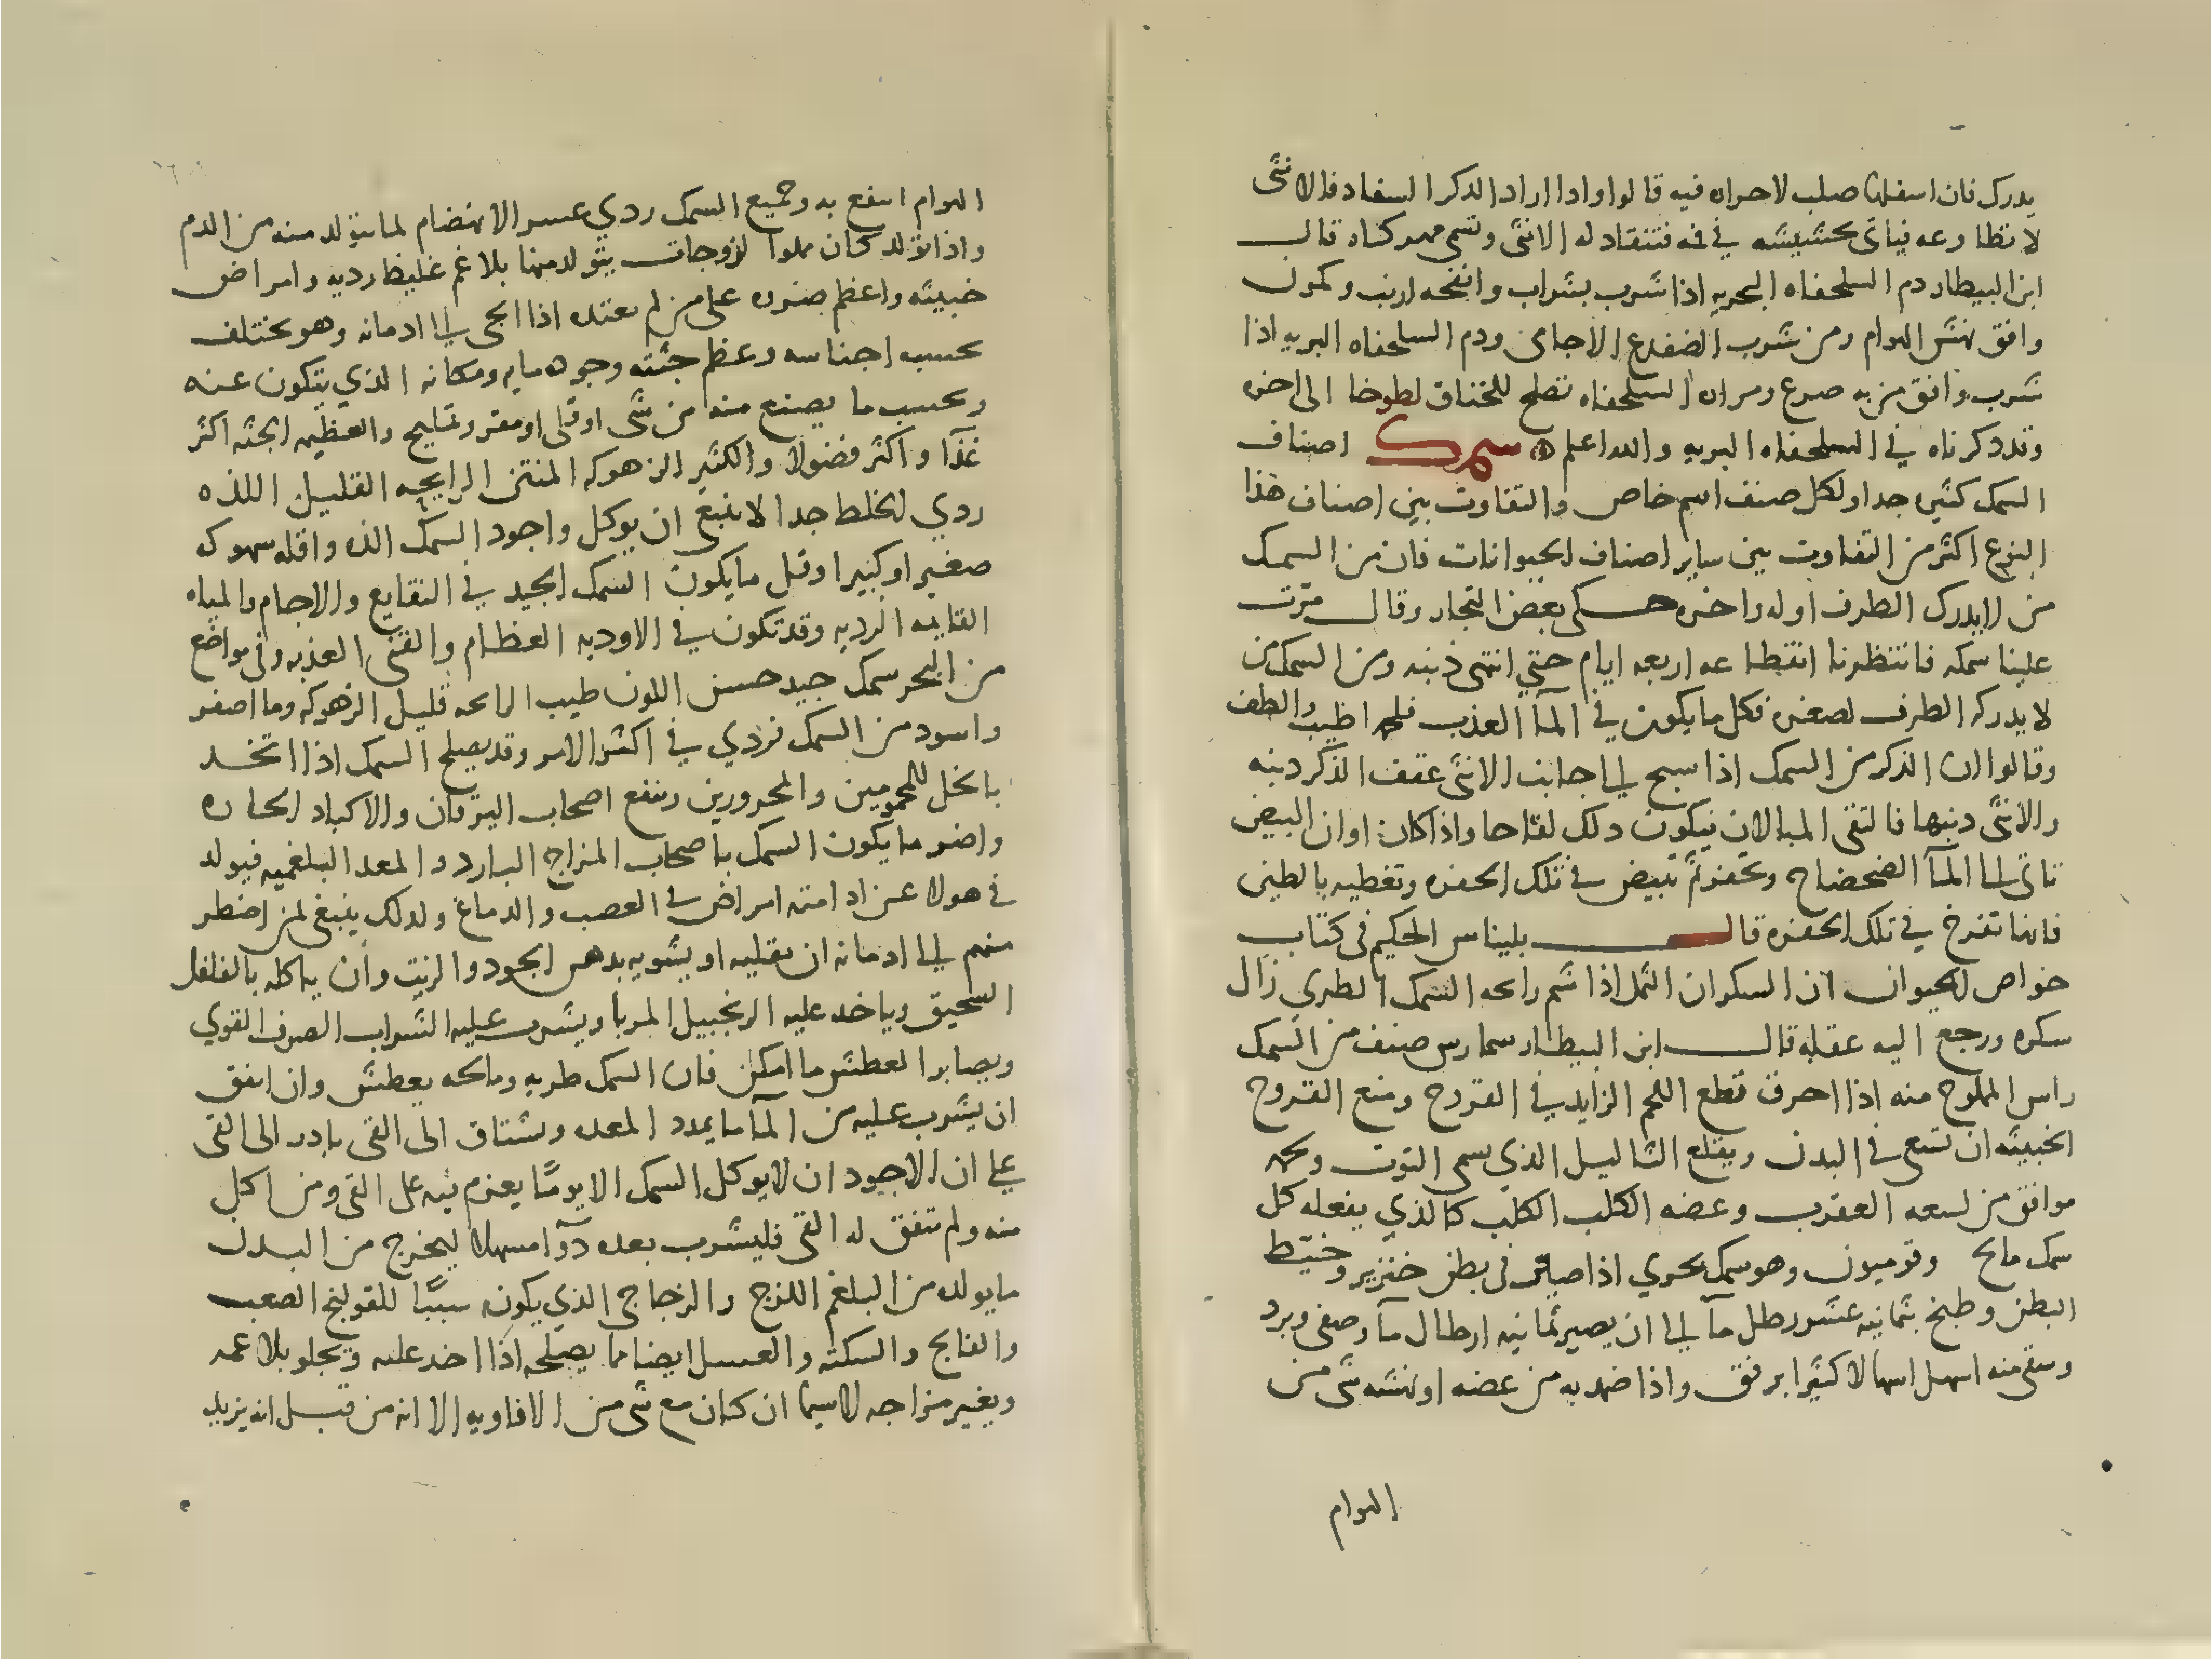 يدرك فان اسفلها صلب لا حراه فيه قالوا واذا اراد الذكر السفاد فالانثى
لا تطاوعه فياتى بحشيشه في فمه فتنقاد له الانثى وتسمى مهركناه قال
ابن البيطار دم السلحفاه البحريه اذا شرب بشراب وانفحه ارنب وكمون
وافق نهش الهوام ومن شرب الضفدع الاجامى ودم السلحفاه البريه اذا
شرب وافق من به صرع ومراره السلحفاه تصلح للخناق لطوخا الى اخره
وقد ذكرناه في السلحفاه البريه والله اعلم سمك اصناف
السمك كثيره جدا ولكل صنف اسم خاص والتفاوت بين اصناف هذا
النوع اكثر من التفاوت بين ساير اصناف الحيوانات فان من السمك
من لا يدرك الطرف اوله واخره حكى بعض التجار وقال مرت
علينا سمكه فانتظرنا انقطاعه اربعه ايام حتي انتهى ذنبه ومن السمك من
لا يدركه الطرف لصغره فكل ما يكون في المآ العذب فلحمه اطيب والطف
وقالوا ان الذكر من السمك اذا سبح الي جانب الانثى عقف الذكر دنبه
والانثى دنبها فالتقى المبالان فيكون دلك لقاحا واذا كان اوان البيض
تاتى الى المآ الضحضاح وتحفر ثم تبيض في تلك الحفره وتغطيه بالطين
فانها تفرخ في تلك الحفره قال بليناس الحكيم فى كتاب
خواص الحيوان ان السكران الثمل اذا شم رايحه السمك الطري زال
سكره ورجع اليه عقله قال ابن البيطار سمارس صنف من السمك
راس المملوح منه اذا احرق قطع اللحم الزايد في القروح ومنع القروح
الخبيثه ان تسعى في البدن ويقلع الثاليل الذي يسمى التوت ولحمه
موافق من لسعه العقرب وعضه الكلب الكلب كالذي يفعله كل
سمك مالح وقوميون وهو سمك بحري اذا صير فى بطن خنزير وخيط
البطن وطبخ بثمانيه عشر رطل مآ الي ان يصير ثمانيه ارطال مآ وصفى وبرد
وسقى منه اسهل اسهالا كثيرا برفق واذا ضمد به من عضه او نهشه شى من
الهوام
الهوام انتفع به وجميع السمك ردي عسر الانهضام لما يتولد منه من الدم
واذا تولد كان مملوا لزوجات يتولد منها بلاغم غليظه رديه وامراض
خبيثه واعظم ضرره على من لم يعتده اذا الجى الي ادمانه وهو يختلف
بحسب اجناسه وعظم جثته وجوده مايه ومكانه الذي يتكون عنه
وبحسب ما يصنع منه من شى او قلى او مقر وتمليح والعظيم الجثه اكثر
غذآ واكثر فضولا والكثير الزهوكه المنتن الرايحه القليل اللذه
ردي الخلط جدا لا ينبغى ان يوكل واجود السمك الذه واقله سهوكه
صغيرا وكبيرا وقل ما يكون السمك الجيد في النقايع والاجام والمياه
القايمه الرديه وقد تكون في الاوديه العظام والقنى العذبه وفى مواضع
من البحر سمك جيد حسن اللون طيب الرايحه قليل الزهوكه وما اصفر
واسود من السمك فردي في اكثر الامر وقد يصلح السمك اذا اتخد
بالخل للمحمومين والمحرورين وينفع اصحاب اليرقان والاكباد الحاره
واضر ما يكون السمك باصحاب المزاج البارد والمعد البلغميه فيولد
في هولا عن ادامته امراض في العصب والدماغ ولدلك ينبغى لمن اضطر
منهم الي ادمانه ان يقليه او يشويه بدهن الجوز والزيت وان ياكله بالفلفل
السحيق وياخد عليه الزنجبيل المربا ويشرب عليه الشراب الصرف القوي
ويصابر العطش ما امكن فان السمك طريه ومالحه يعطش وان اتفق
ان يشرب عليه من المآ ما يمدد المعده ويشتاق الى القى بادر الى القى
علي ان الاجود ان لا يوكل السمك الا يومًا يعزم فيه على القى ومن اكل
منه ولم يتفق له القى فليشرب بعده دوآ مسهلا ليخرج من البدن
ما يولده من البلغم اللزج والزجاجى الذي يكون سببًا للقولنج الصعب
والفالج والسكته والعسل ايضا مما يصلحه اذا اخد عليه ويجلو بلاغمه
ويغير مزاجه لا سيما ان كان مع شى من الافاويه الا انه من قبل انه يزيد